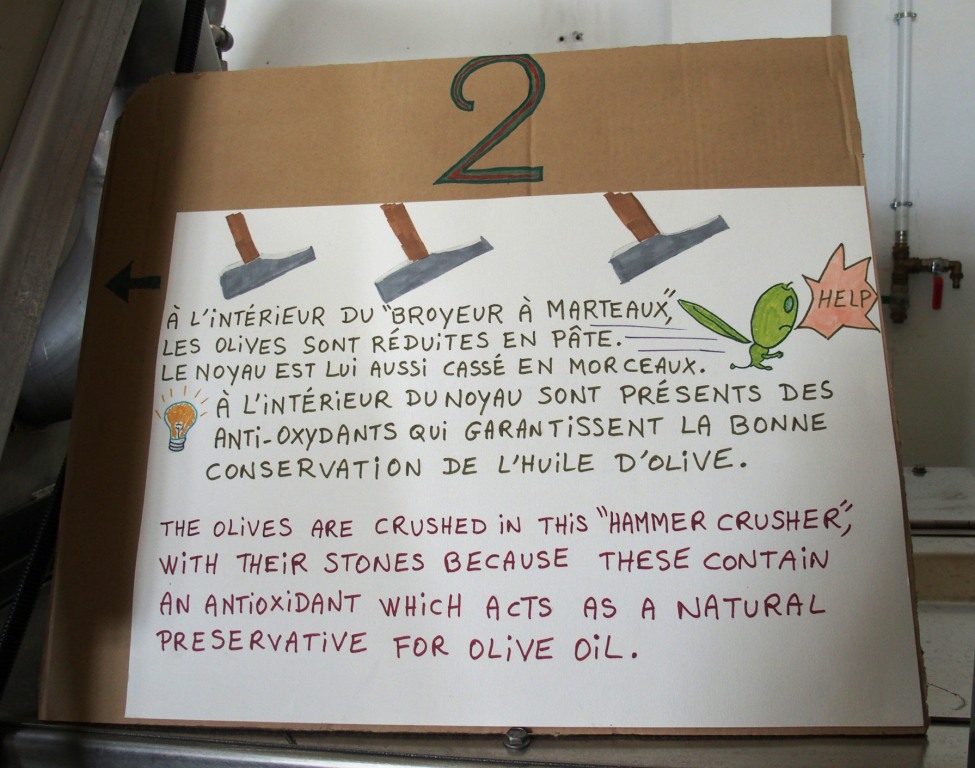 2
À L'INTÉRIEUR DU "BROYEUR À MARTEAUX",
HELP
LES OLIVES SONT RÉDUITES EN PÂTE.
LE NOYAU EST LUI AUSSI CASSÉ EN MORCEAUX.
À L'INTÉRIEUR DU NOYAU SONT PRÉSENTS DES
ANTI-OXYDANTS QUI GARANTISSENT LA BONNE
CONSERVATION DE L'HUILE D'OLIVE.
THE OLIVES ARE CRUSHED IN THIS "HAMMER CRUSHER",
WITH THEIR STONES BECAUSE THESE CONTAIN
AN ANTIOXIDANT WHICH ACTS AS A NATURAL
PRESERVATIVE FOR OLIVE OIL.